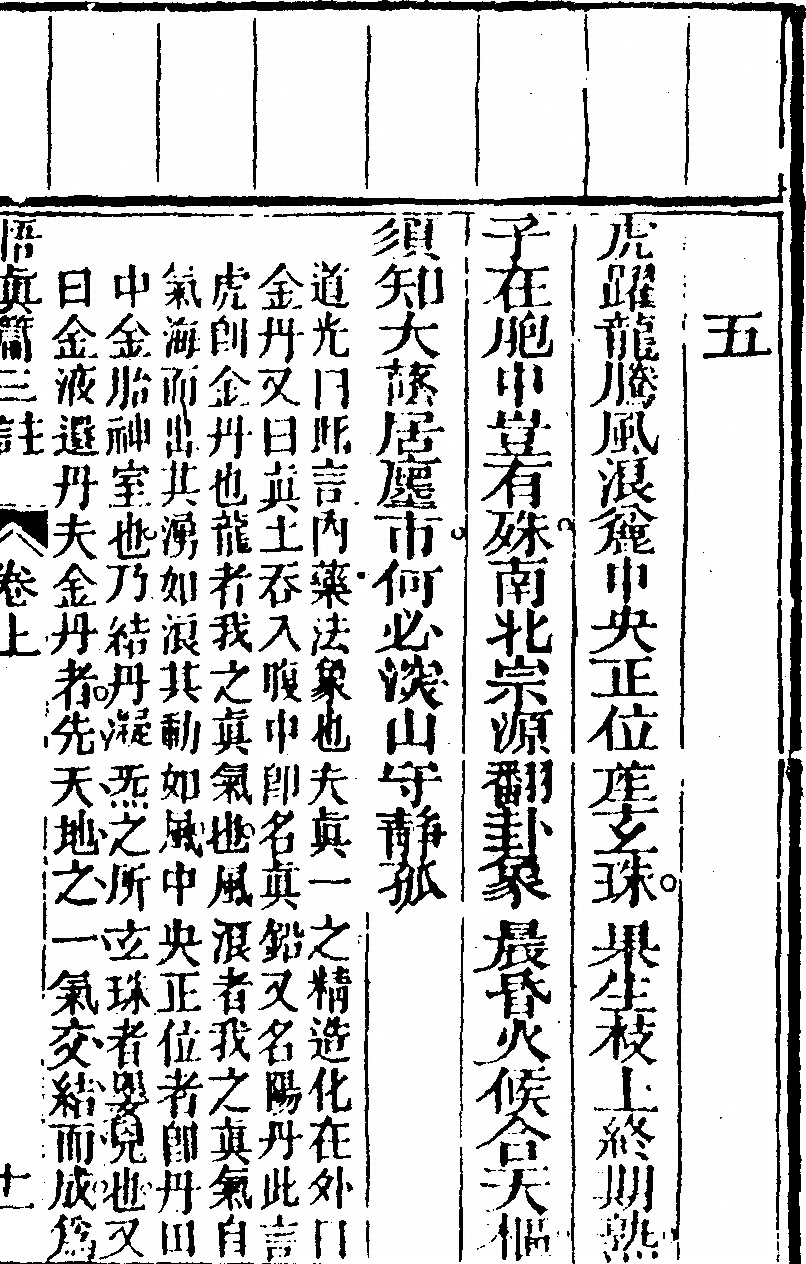 五
虎躍龍騰風浪麄中央正位產玄珠果生枝上終期熟
子在胞中豈有殊南北宗源翻卦象晨昏火候合天樞
須知大隱居塵市何必深山守靜孤
道光曰此言內藥法象也夫真一之精造化在外曰
金丹又曰真土吞入腹中卽名真鉛又名陽丹此言
虎卽金丹也龍者我之真氣也風浪者我之真氣自
氣海而出其湧如浪其動如風中央正位者卽丹田
中金胎神室也乃結丹凝炁之所玄珠者嬰兒也又
曰金液還丹夫金丹者先天地之一氣交結而成爲
悟真篇三註 卷上 十一